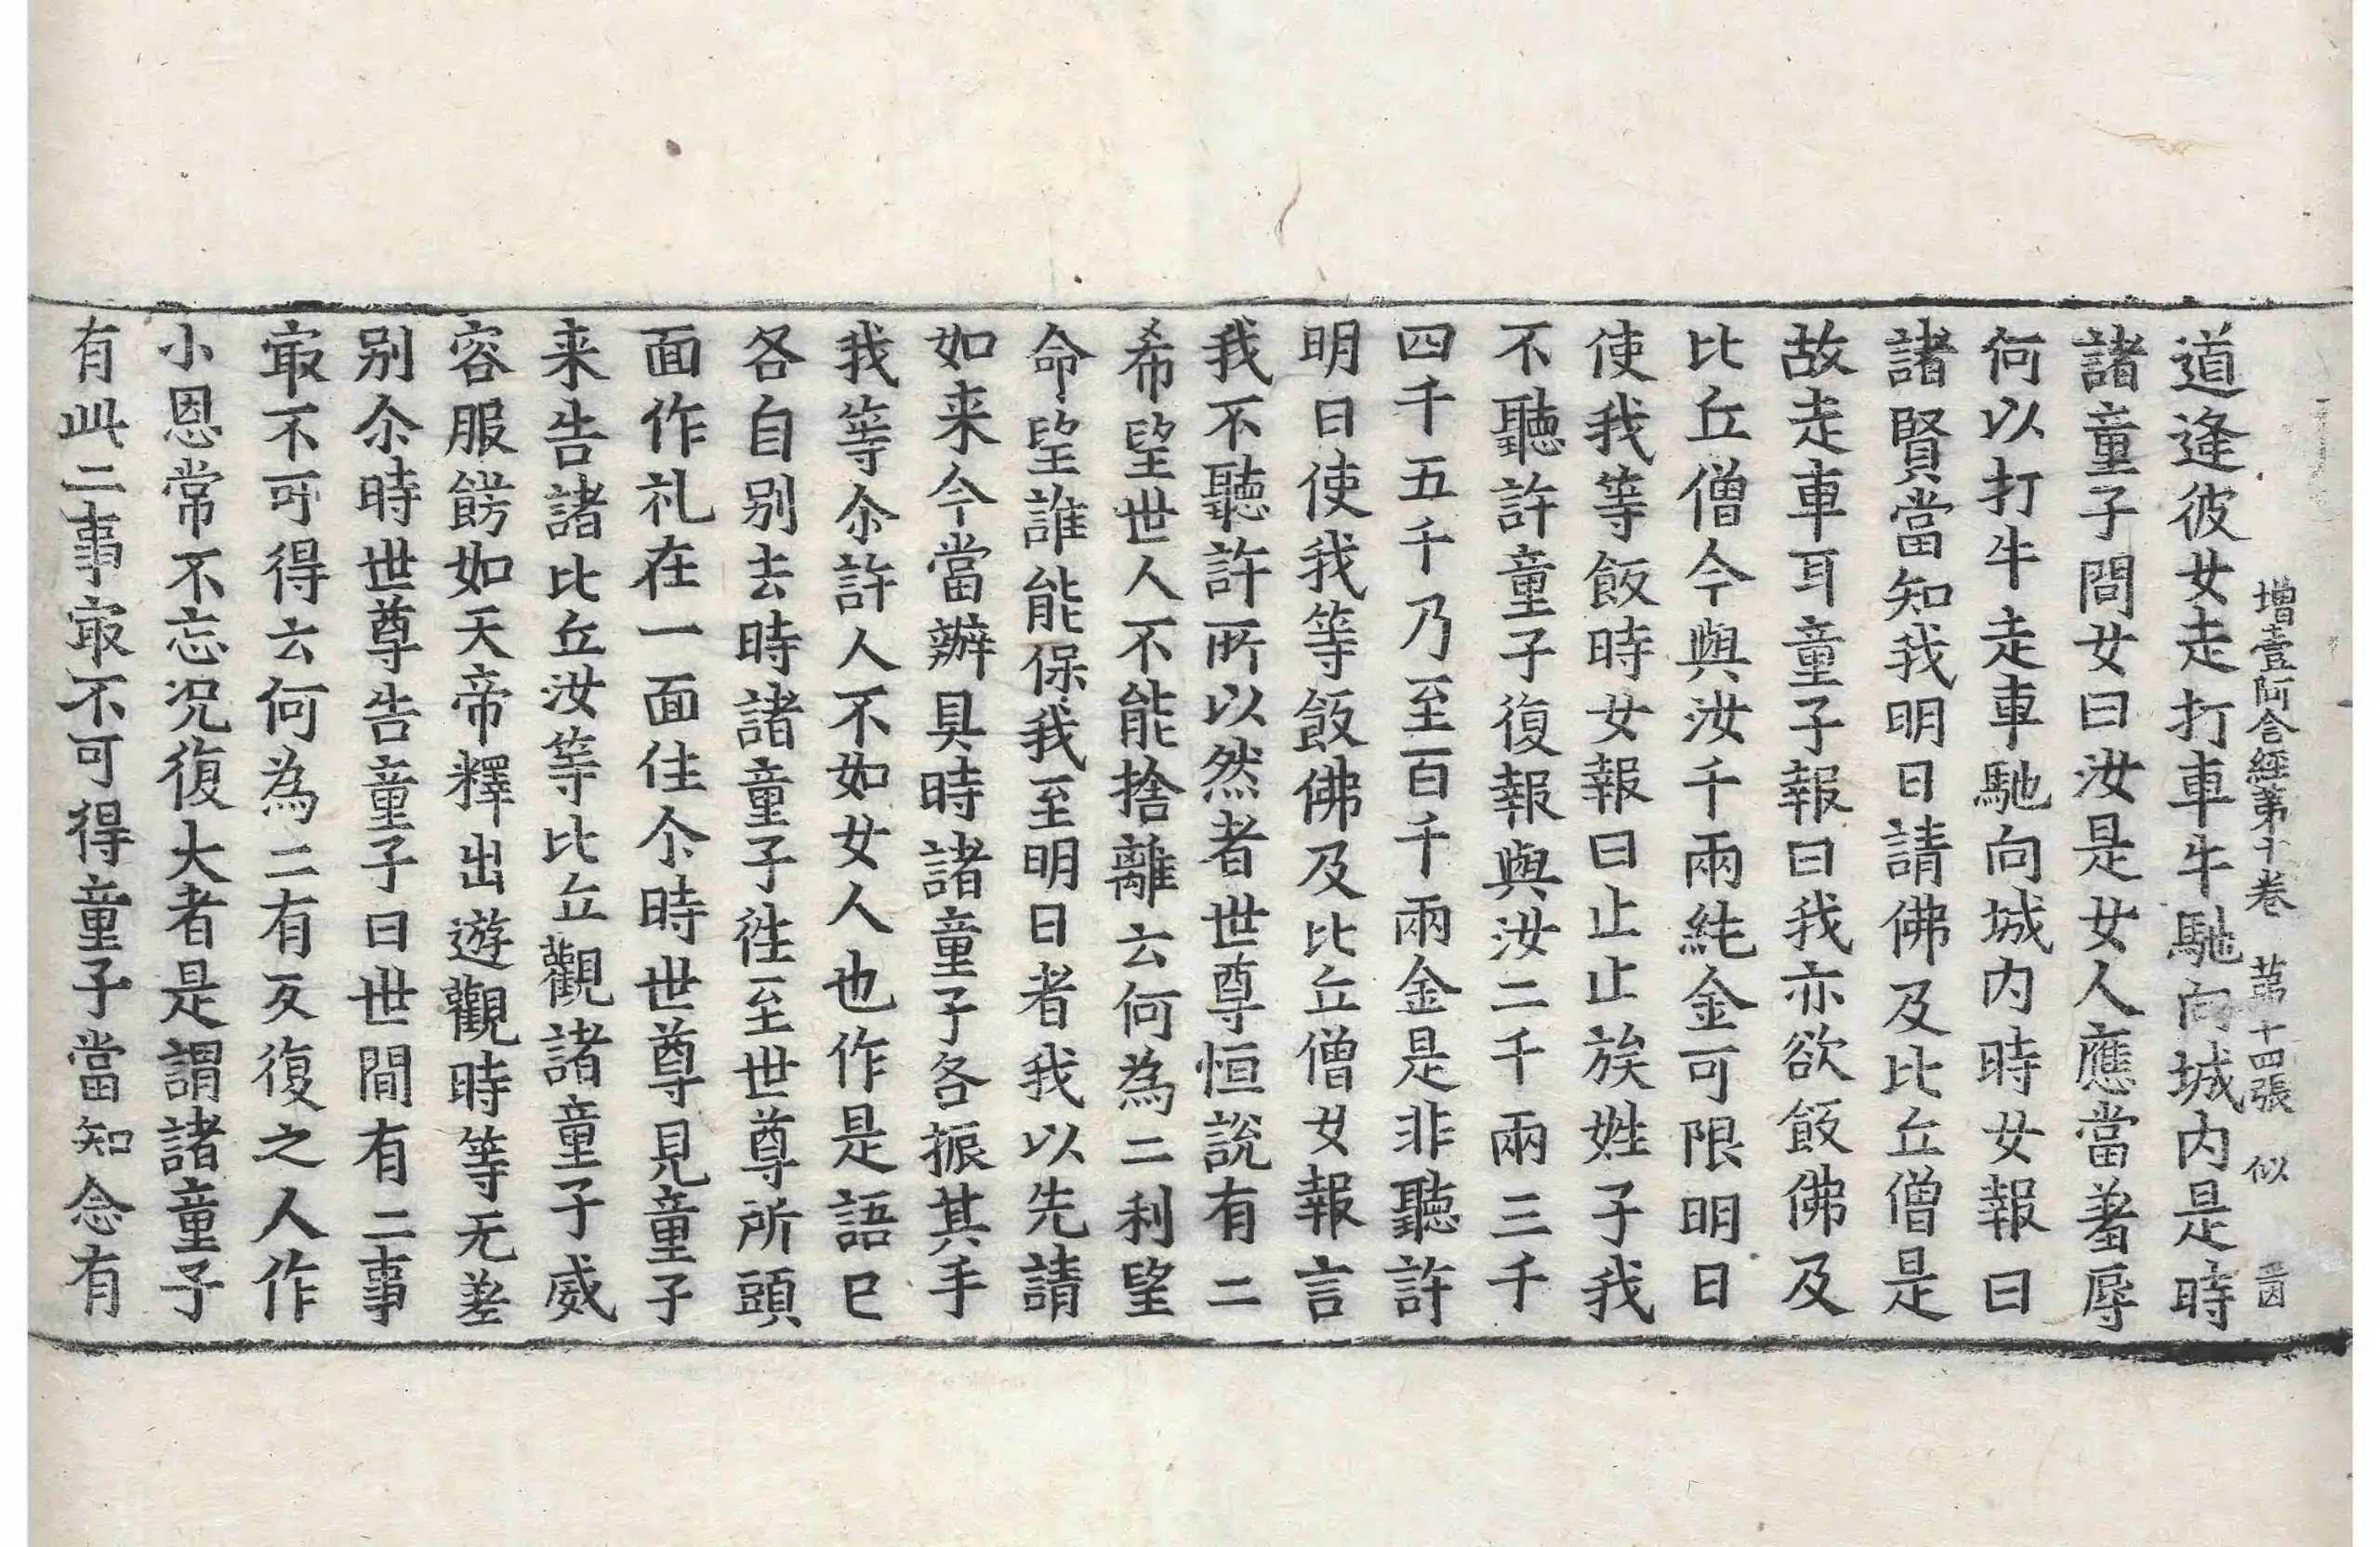 增壹阿含經第十卷 第十四張 似
道逢彼女走打車牛馳向城內是時
諸童子問女曰汝是女人應當羞辱
何以打牛走車馳向城內時女報曰
諸賢當知我明日請佛及比丘僧是
故走車耳童子報曰我亦欲飯佛及
比丘僧今與汝千兩純金可限明日
使我等飯時女報曰止止族姓子我
不聽許童子復報與汝二千兩三千
四千五千乃至百千兩金是非聽許
明日使我等飯佛及比丘僧女報言
我不聽許所以然者世尊恒說有二
希望世人不能捨離云何為二利望
命望誰能保我至明日者我以先請
如来今當辦具時諸童子各振其手
我等尒許人不如女人也作是語已
各自別去時諸童子往至世尊所頭
面作礼在一面住尒時世尊見童子
来告諸比丘汝等比丘觀諸童子威
容服餝如天帝釋出遊觀時等无差
別尒時世尊告童子曰世間有二事
㝡不可得云何為二有反復之人作
小恩常不忘況復大者是謂諸童子
有此二事㝡不可得童子當知念有